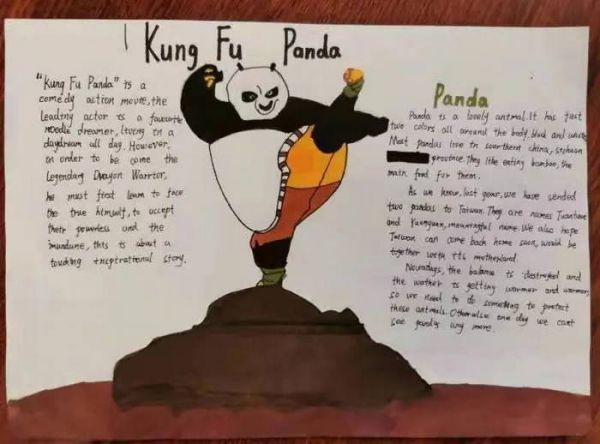 Kung Fu Panda
"Kung Fu Panda" is a
comedy action movie, the
leading actor is a favourite
noodle dreamer, living in a
daydream all day. However,
in order to be come the
Legendary Dragon Warrior,
he must first learn to face
the true himself, to accept
their powerless and the
mundune, this is about a
touching inspirational story.
Panda
Panda is a lovely animal. It has just
two colors all around the body, black and white
Most pandas live in sourthern china, sichuan
province. They like eating bamboo, the
main food for them.
As we know, last year, we have sended
two pandas to Taiwan. They are names Tuantuan
and Yuanyuan, meaningful name. We also hope
Taiwan can come back home soon, would be
together with its motherland.
Nowadays, the balance is destroyed and
the wather is getting warmer and warmer,
so we need to do something to protect
these animals. Otherwise one day we cant
see pandas any more.